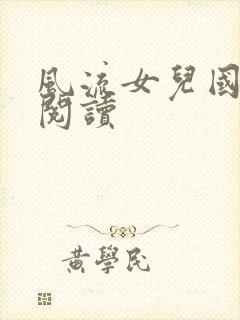 風流女兒國
閱讀
黃學民